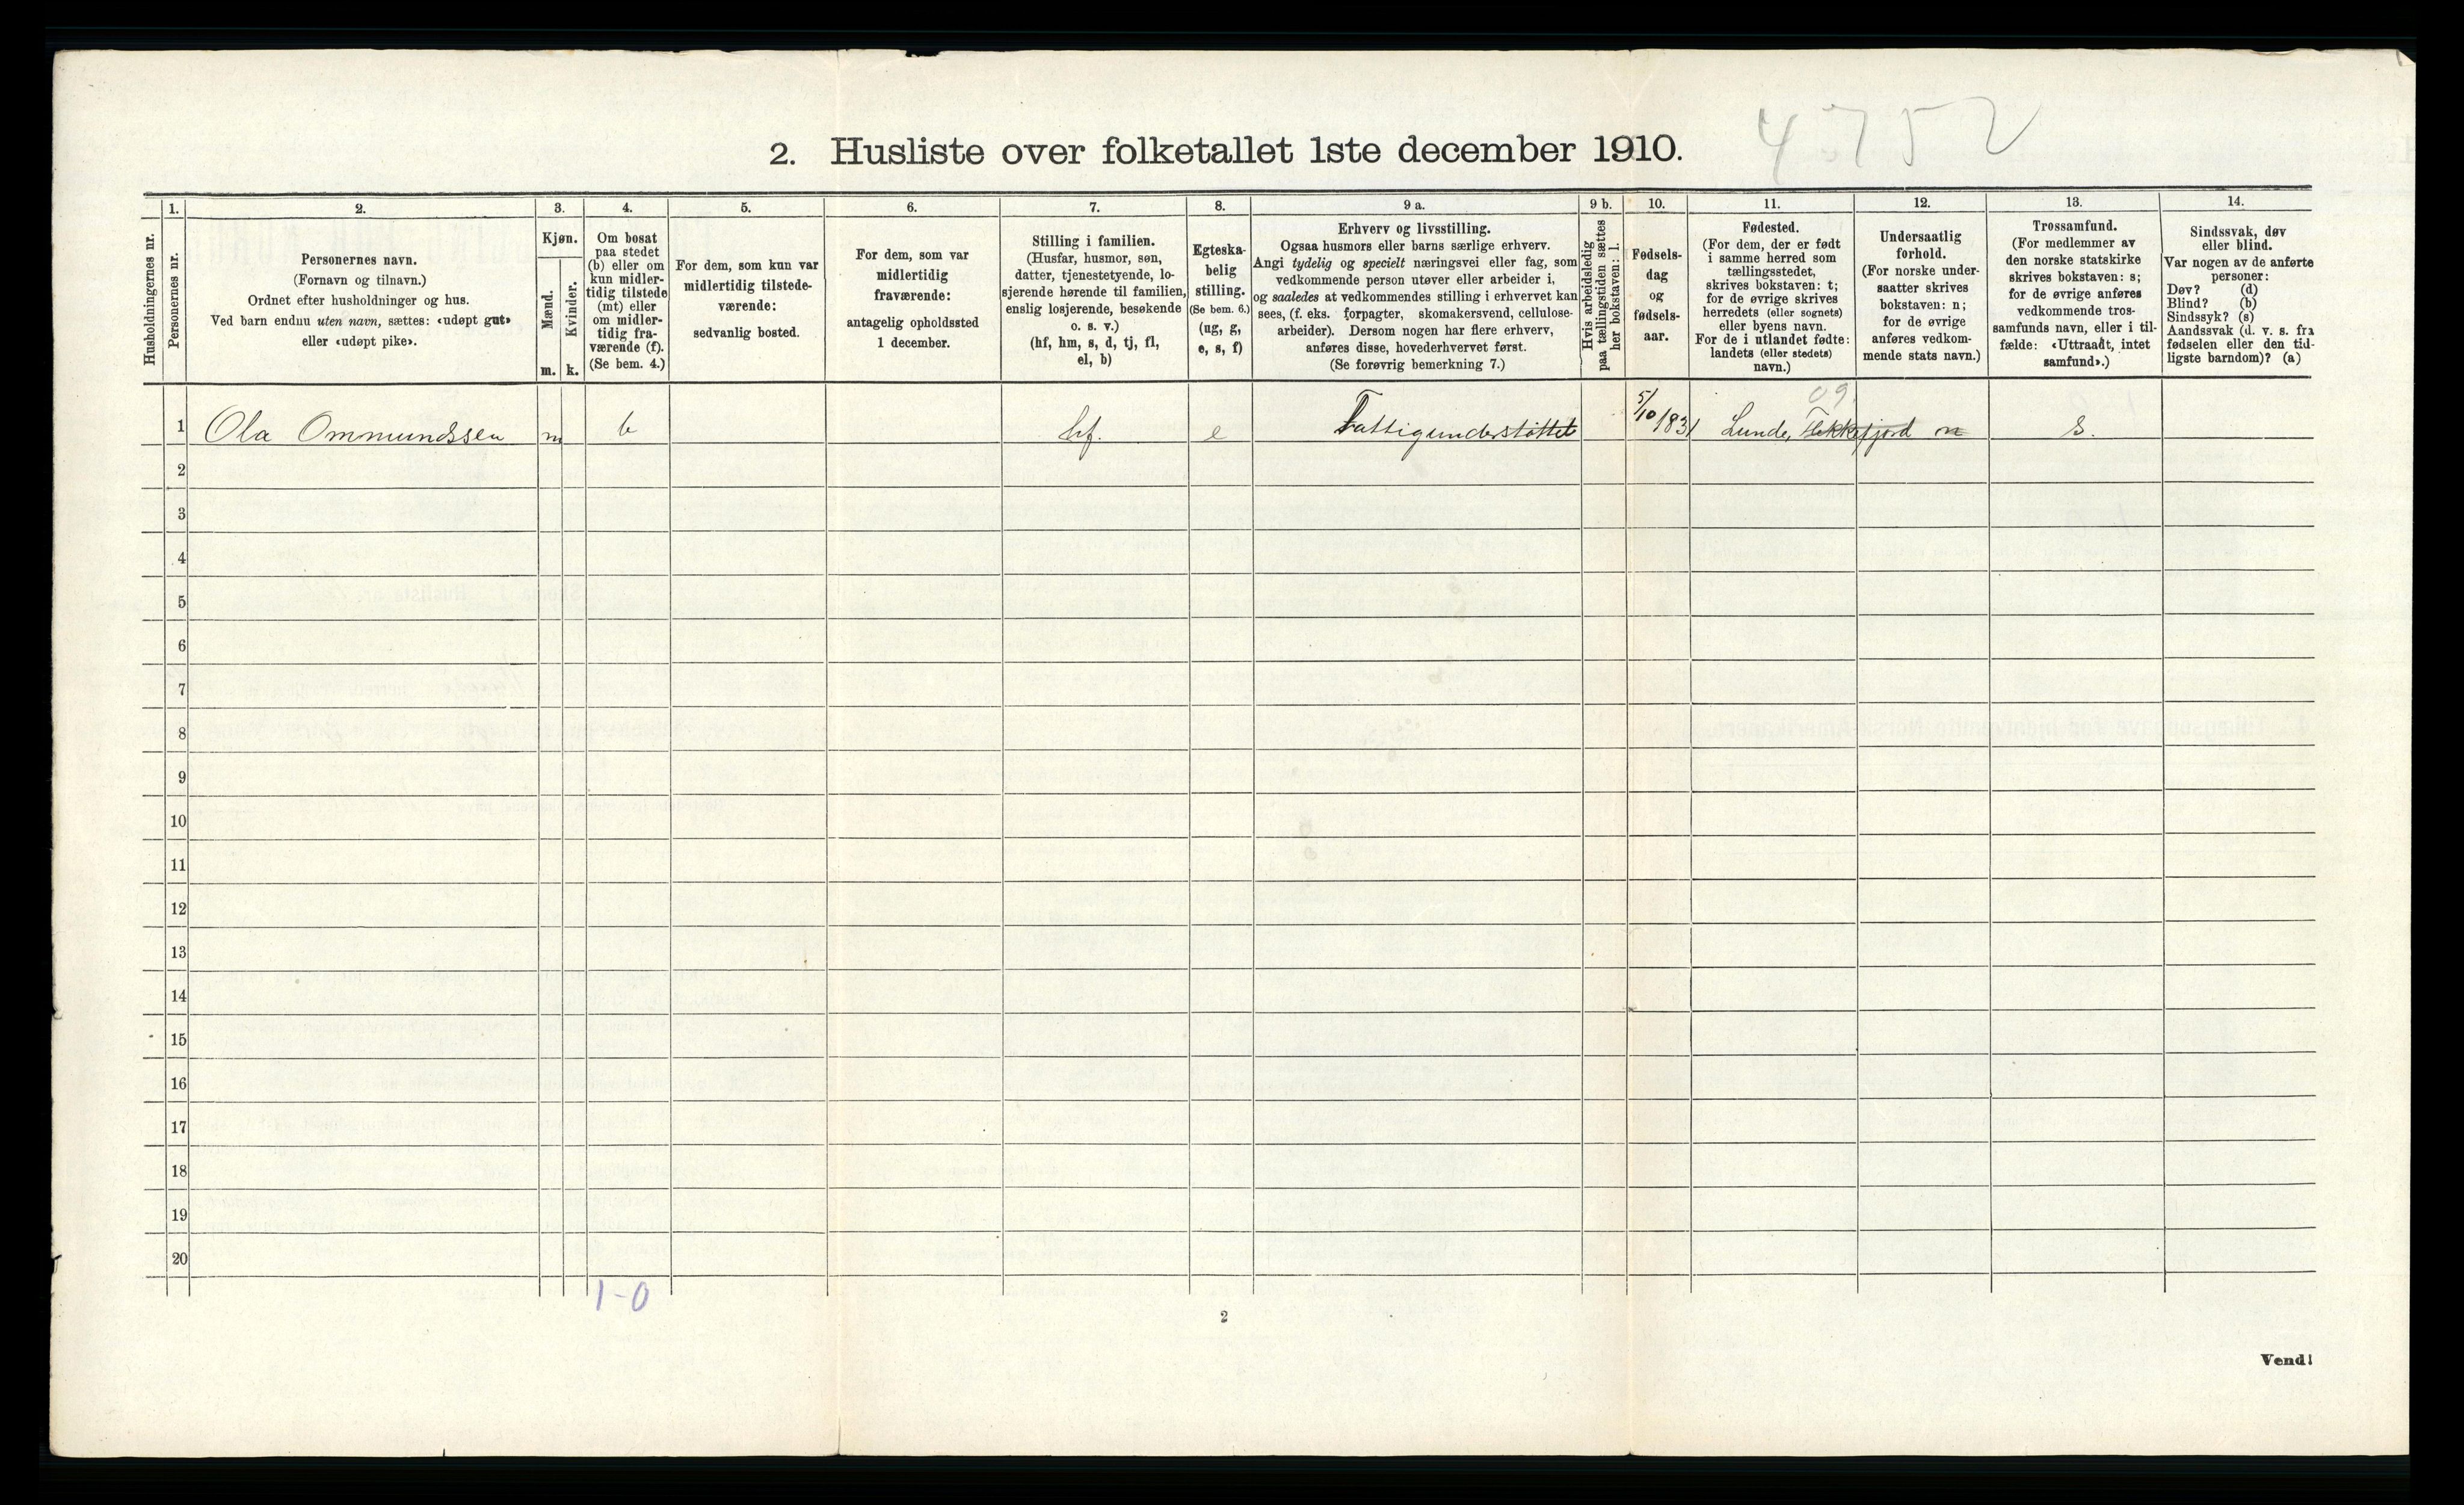 4752
2. Husliste over folketallet 1ste december 1910.
Husholdningernes nr.
1.
Personernes nr.
2.
Personernes navn.
(Fornavn og tilnavn.)
Ordnet efter husholdninger og hus.
Ved barn endnu uten navn, sættes: «udøpt gut»
eller «udøpt pike».
3.
Kjøn.
Mænd.
Kvinder.
m. k.
4.
Om bosat
paa stedet
(b) eller om
kun midler-
tidig tilstede
(mt) eller
om midler-
tidig fra-
værende (f).
(Se bem. 4.)
5.
For dem, som kun var
midlertidig tilstede-
værende:
sedvanlig bosted.
6.
For dem, som var
midlertidig
fraværende:
antagelig opholdssted
1 december.
7.
Stilling i familien.
(Husfar, husmor, søn,
datter, tjenestetyende, lo-
sjerende hørende til familien,
enslig losjerende, besøkende
o. s. v.)
(hf, hm, s, d, tj, fl,
el, b)
8.
Egteska-
belig
stilling.
(Se bem. 6.)
(ug, g,
e, s, f)
9 a.
Erhverv og livsstilling.
Ogsaa husmors eller barns særlige erhverv.
Angi tydelig og specielt næringsvei eller fag, som
vedkommende person utøver eller arbeider i,
og saaledes at vedkommendes stilling i erhvervet kan
sees, (f. eks. forpagter, skomakersvend, cellulose-
arbeider). Dersom nogen har flere erhverv,
anføres disse, hovederhvervet først.
(Se forøvrig bemerkning 7.)
9 b.
Hvis arbeidsledig
paa tællingstiden sættes
her bokstaven: l.
10.
Fødsels-
dag
og
fødsels-
aar.
11.
Fødested.
(For dem, der er født
i samme herred som
tællingsstedet,
skrives bokstaven: t;
for de øvrige skrives
herredets (eller sognets)
eller byens navn.
For de i utlandet fødte:
landets (eller stedets)
navn.)
12.
Undersaatlig
forhold.
(For norske under-
saatter skrives
bokstaven: n;
for de øvrige
anføres vedkom-
mende stats navn.)
13.
Trossamfund.
(For medlemmer av
den norske statskirke
skrives bokstaven: s;
for de øvrige anføres
vedkommende tros-
samfunds navn, eller i til-
fælde: «Uttraadt, intet
samfund».)
14.
Sindssvak, døv
eller blind.
Var nogen av de anførte
personer:
Døv? (d)
Blind? (b)
Sindssyk? (s)
Aandssvak (d. v. s. fra
fødselen eller den tid-
ligste barndom)? (a)
09.
1 Ola Ommundssen m b hf. e Fattigunderstöttet 5/10 1831 Lunde, Flekkefjord n s.
2
3
4
5
6
7
8
9
10
11
12
13
14
15
16
17
18
19
20
1-0
2
Vend!